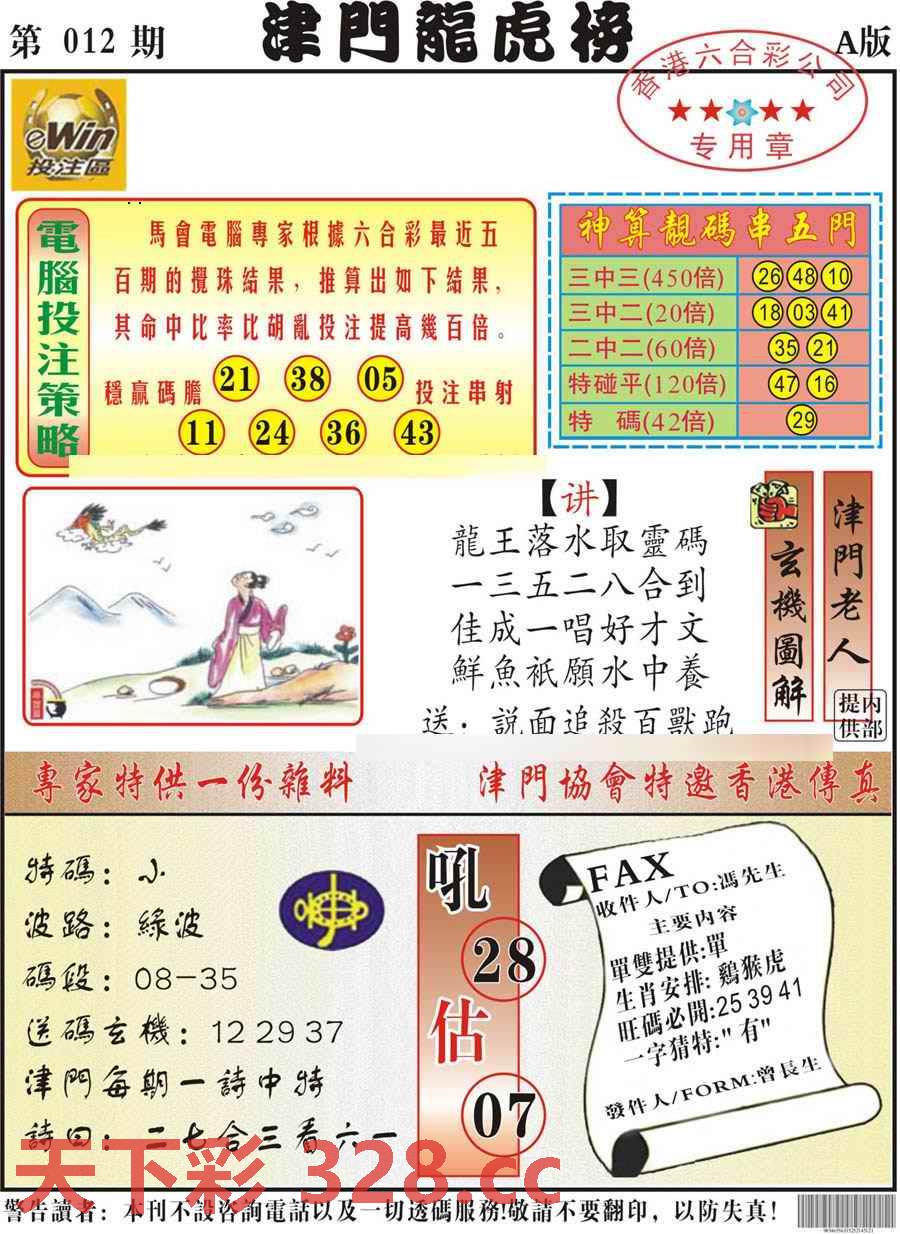 第 012 期
津門龍虎榜
A版
香港六合彩公司
专用章
eWin
投注區
電腦投注策略
馬會電腦專家根據六合彩最近五
百期的攪珠結果，推算出如下結果，
其命中比率比胡亂投注提高幾百倍。
穩贏碼膽 21 38 05 投注串射
11 24 36 43
神算靚碼串五門
三中三(450倍) 26 48 10
三中二(20倍) 18 03 41
二中二(60倍) 35 21
特碰平(120倍) 47 16
特 碼(42倍) 29
【讲】
龍王落水取靈碼
一三五二八合到
佳成一唱好才文
鮮魚衹願水中養
送：説面追殺百獸跑
玄機圖解
津門老人
内部提供
專家特供一份雜料
津門協會特邀香港傳真
特碼：小
波路：綠波
碼段：08-35
送碼玄機：12 29 37
津門每期一詩中特
詩曰：二七合三看六一
吼
28
估
07
FAX
收件人/TO:馮先生
主要内容
單雙提供:單
生肖安排:鷄猴虎
旺碼必開:25 39 41
一字猜特:"有"
發件人/FORM:曾長生
天下彩 328.cc
警告讀者：本刊不設咨詢電話以及一切透碼服務!敬請不要翻印，以防失真！